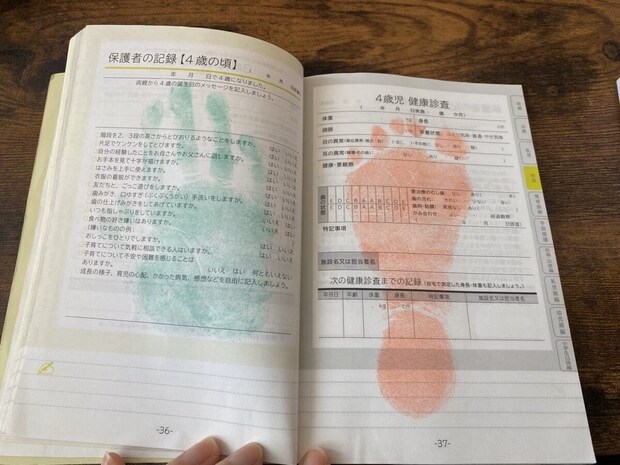 保護者の記録【4歳の頃】
年 月 日で4歳になりました。
両親から4歳の誕生日のメッセージを記入しましょう。
階段を2、3段の高さからとびおりるようなことをしますか。 はい いいえ
片足でケンケンをしてとびますか。 はい いいえ
自分の経験したことをお母さんやお父さんに話しますか。 はい いいえ
お手本を見て十字が描けますか。 はい いいえ
はさみを上手に使えますか。 はい いいえ
衣服の着脱ができますか。 はい いいえ
友だちと、ごっこ遊びをしますか。 はい いいえ
歯みがき、口ゆすぎ(ぶくぶくうがい)、手洗いをしますか。 はい いいえ
歯の仕上げみがきをしてあげていますか。 はい いいえ
いつも指しゃぶりをしていますか。 はい いいえ
食べ物の好き嫌いはありますか。 はい いいえ
(嫌いなものの例: )
おしっこをひとりでしますか。 はい いいえ
子育てについて気軽に相談できる人はいますか。 はい いいえ
子育てについて不安や困難を感じることは
ありますか。 いいえ はい 何ともいえない
成長の様子、育児の心配、かかった病気、感想などを自由に記入しましょう。
-36-
4歳児 健康診査
年 月 日実施・ 歳 か月
体重 身長
頭囲
目の異常
耳の異常
健康・要観察
歯の状態
E D C B A A B C D E
E D C B A A B C D E
要治療のむし歯
歯の汚れ
かみ合わせ
特記事項
施設名又は担当者名
次の健康診査までの記録 (自宅で測定した身長・体重も記入しましょう。)
年月日 年齢 体重 身長 特記事項 施設名又は担当者名
-37-